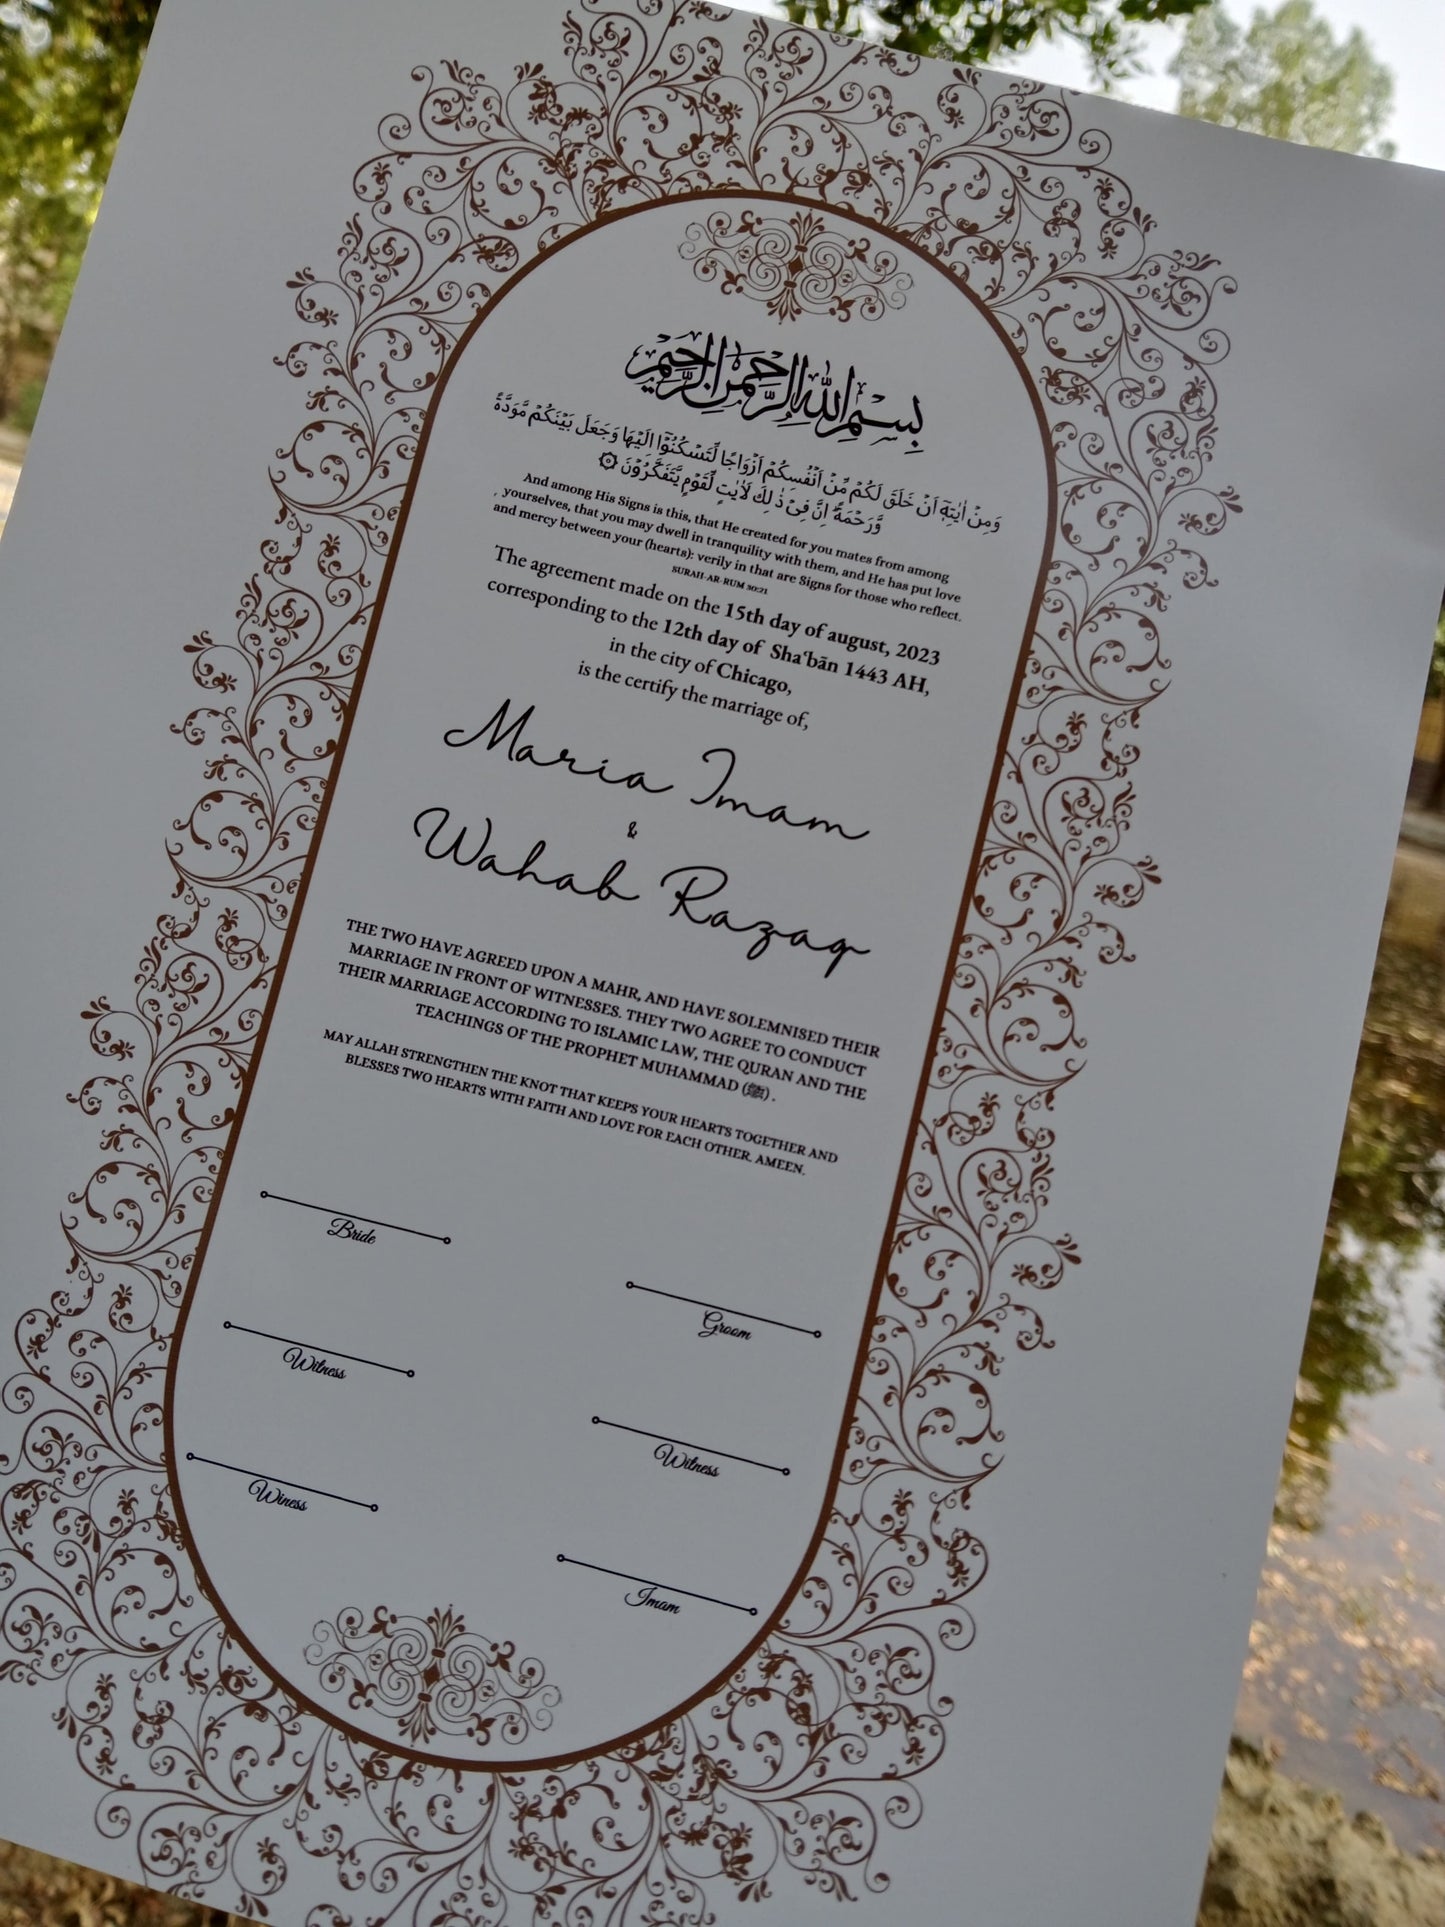 بِسْمِ اللهِ الرَّحْمٰنِ الرَّحِيْمِ
وَمِنْ اٰيٰتِهٖٓ اَنْ خَلَقَ لَكُمْ مِّنْ اَنْفُسِكُمْ اَزْوَاجًا لِّتَسْكُنُوْٓا اِلَيْهَا وَجَعَلَ بَيْنَكُمْ مَّوَدَّةً
وَّرَحْمَةً ۭ اِنَّ فِيْ ذٰلِكَ لَاٰيٰتٍ لِّقَوْمٍ يَّتَفَكَّرُوْنَ
And among His Signs is this, that He created for you mates from among
, yourselves, that you may dwell in tranquility with them, and He has put love
and mercy between your (hearts): verily in that are Signs for those who reflect.
SURAH-AR-RUM 30:21
The agreement made on the 15th day of august, 2023
corresponding to the 12th day of Sha‘bān 1443 AH,
in the city of Chicago,
is the certify the marriage of,
Maria Imam
&
Wahab Razaq
THE TWO HAVE AGREED UPON A MAHR, AND HAVE SOLEMNISED THEIR
MARRIAGE IN FRONT OF WITNESSES. THEY TWO AGREE TO CONDUCT
THEIR MARRIAGE ACCORDING TO ISLAMIC LAW, THE QURAN AND THE
TEACHINGS OF THE PROPHET MUHAMMAD (ﷺ) .
MAY ALLAH STRENGTHEN THE KNOT THAT KEEPS YOUR HEARTS TOGETHER AND
BLESSES TWO HEARTS WITH FAITH AND LOVE FOR EACH OTHER. AMEEN.
Bride
Groom
Witness
Witness
Winess
Imam